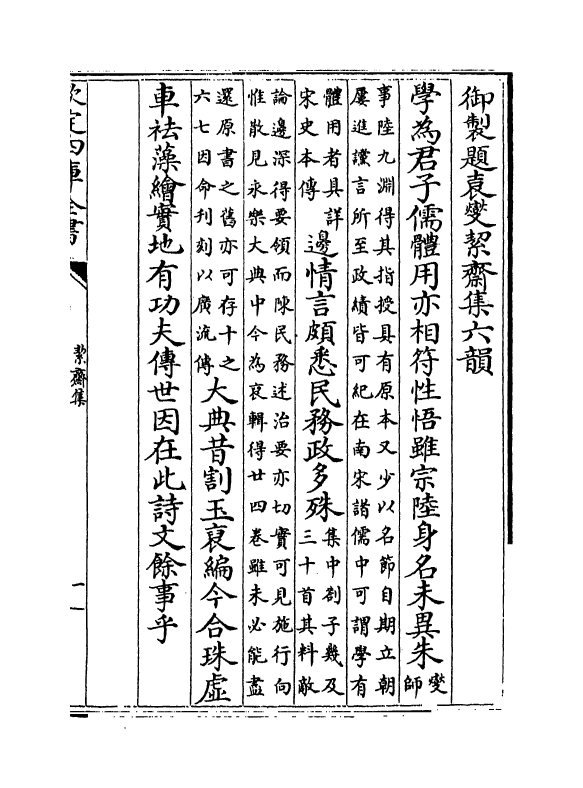 御製題袁燮絜齋集六韻
學為君子儒體用亦相符性悟雖宗陸身名未異朱燮師
事陸九淵得其指授具有原本又少以名節自期立朝
屢進讜言所至政績皆可紀在南宋諸儒中可謂學有
體用者具詳
宋史本傳
邊情言頗悉民務政多殊
集中劄子幾及
三十首其料敵
論邊深得要領而陳民務述治要亦切實可見施行向
惟散見永樂大典中今為裒輯得廿四卷雖未必能盡
還原書之舊亦可存十之
六七因命刊刻以廣流傳
大典昔割玉裒編今合珠虛
車祛藻繪實地有功夫傳世因在此詩文餘事乎
欽定四庫全書
絜齋集
一